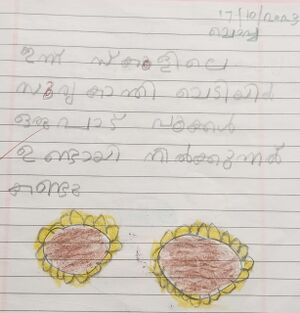 17/10/2023
ചൊവ്വ
ഇന്ന് സ്കൂളിലെ
സൂര്യകാന്തി ചെടിയിൽ
ഒരുപാട് പൂക്കൾ
ഉണ്ടായി നിൽക്കുന്നത്
കണ്ടു